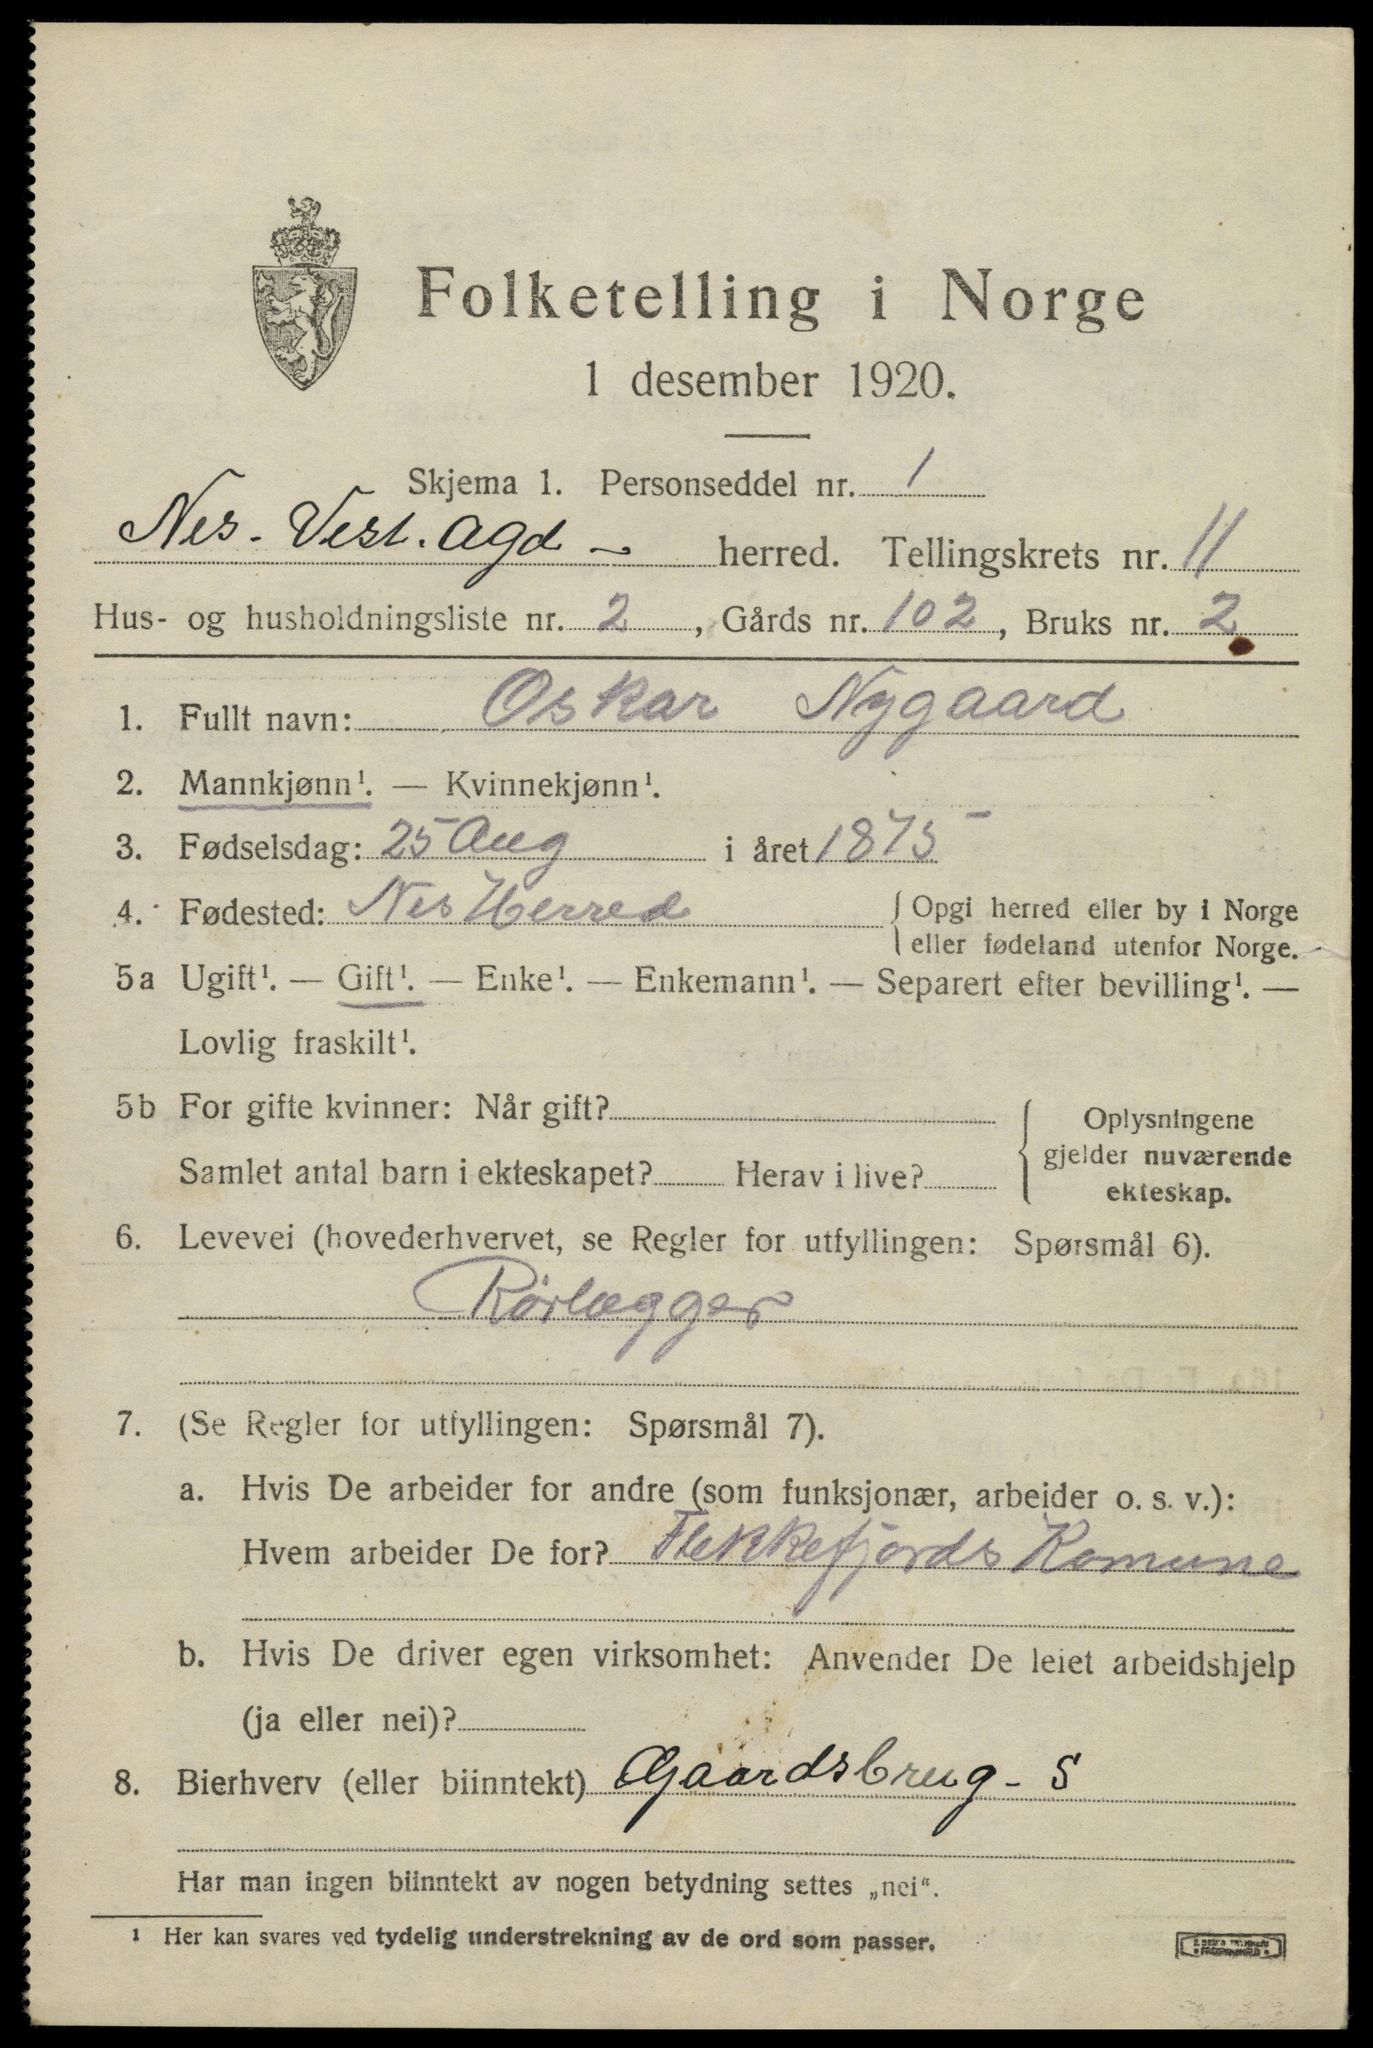 Folketelling i Norge
1 desember 1920.
Skjema 1. Personseddel nr. 1
Nes - Vest. Agd - herred. Tellingskrets nr. 11
Hus- og husholdningsliste nr. 2, Gårds nr. 102, Bruks nr. 2
1. Fullt navn: Oskar Nygaard
2. Mannkjønn¹. — Kvinnekjønn¹.
3. Fødselsdag: 25 Aug i året 1875
4. Fødested: Nes Herred { Opgi herred eller by i Norge
eller fødeland utenfor Norge.
5a Ugift¹. — Gift¹. — Enke¹. — Enkemann¹. — Separert efter bevilling¹. —
Lovlig fraskilt¹.
5b For gifte kvinner: Når gift? Oplysningene
gjelder nuværende
Samlet antal barn i ekteskapet? Herav i live?
ekteskap.
6. Levevei (hovederhvervet, se Regler for utfyllingen: Spørsmål 6).
Rørlægger
7. (Se Regler for utfyllingen: Spørsmål 7).
a. Hvis De arbeider for andre (som funksjonær, arbeider o. s. v.):
Hvem arbeider De for? Flekkefjords Komune
b. Hvis De driver egen virksomhet: Anvender De leiet arbeidshjelp
(ja eller nei)?
8. Bierhverv (eller biinntekt) Gaardsbrug - S
Har man ingen biinntekt av nogen betydning settes „nei“.
¹ Her kan svares ved tydelig understrekning av de ord som passer.